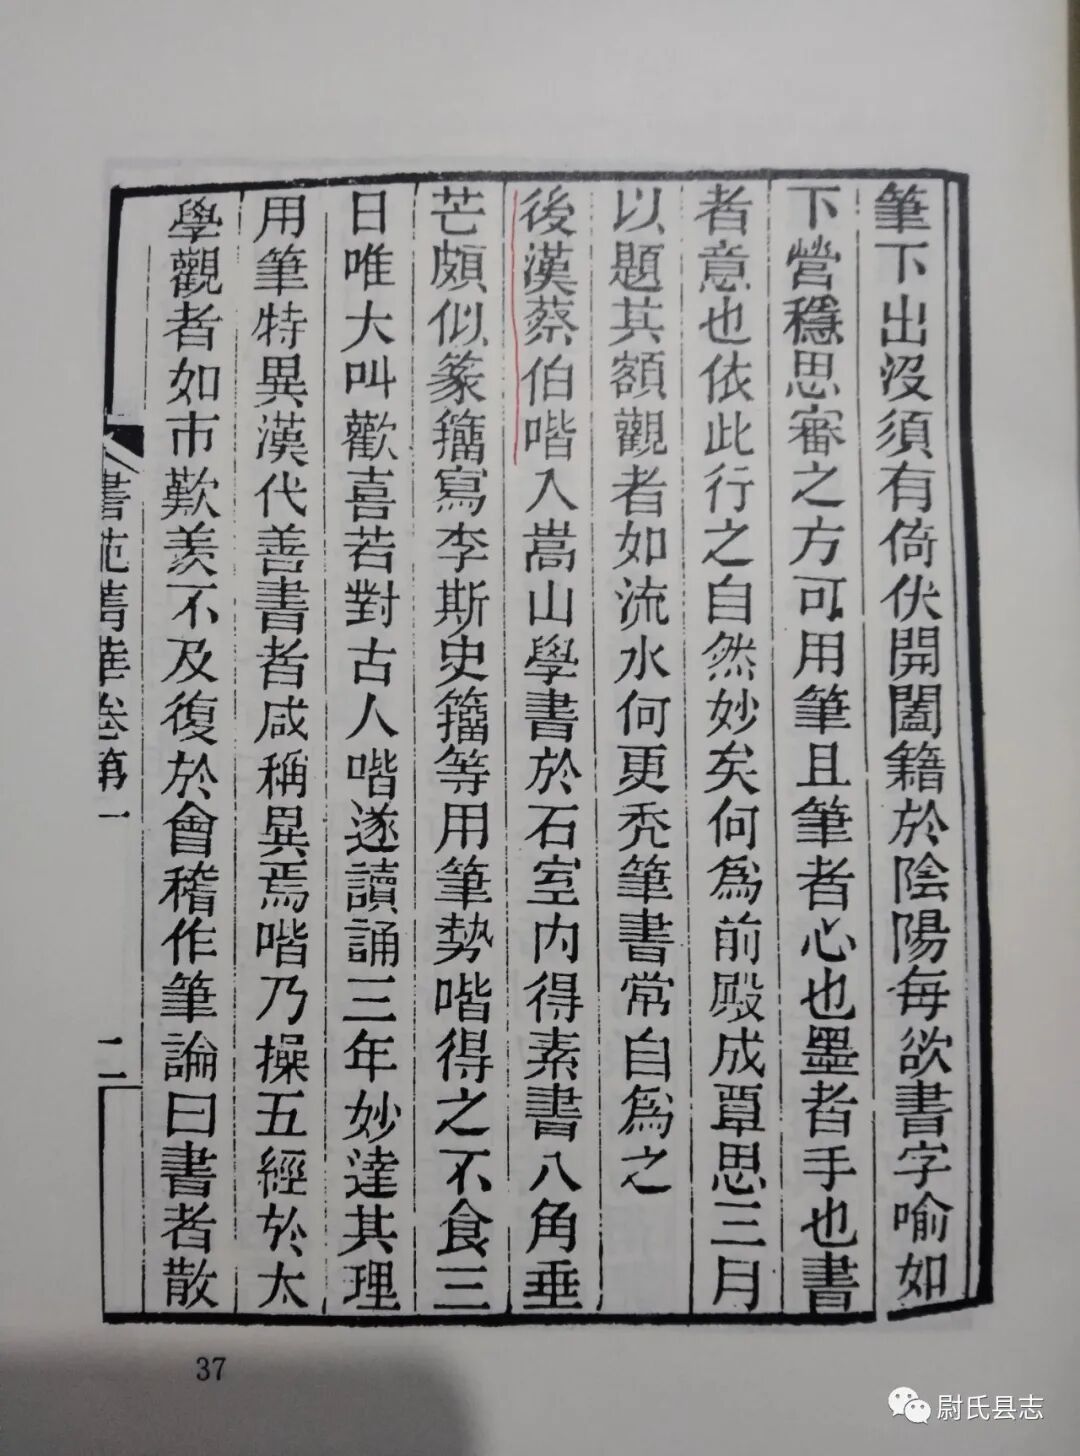 筆下出沒須有倚伏開闔籍於陰陽每欲書字喻如
下營穩思審之方可用筆且筆者心也墨者手也書
者意也依此行之自然妙矣何爲前殿成覃思三月
以題其額觀者如流水何更禿筆書常自爲之
後漢蔡伯喈入嵩山學書於石室内得素書八角垂
芒頗似篆籀寫李斯史籀等用筆勢喈得之不食三
日唯大叫歡喜若對古人喈遂讀誦三年妙達其理
用筆特異漢代善書者咸稱異焉喈乃操五經於太
學觀者如市歎羨不及復於會稽作筆論曰書者散
書苑菁華卷第一
二
37
尉氏县志